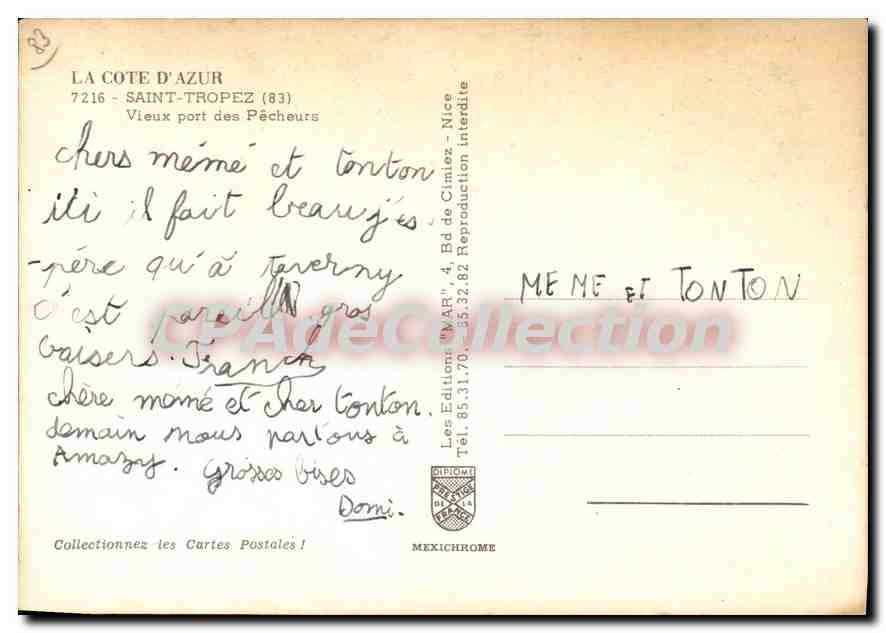 83
LA COTE D'AZUR
7216 - SAINT-TROPEZ (83)
Vieux port des Pêcheurs
chers mémé et tonton
iti il fait beau j'es
-père qu'à taverny
c'est pareil gros
baisers. Franck
chère mémé et cher tonton.
demain nous partons à
Amazy. Grosses bises
Domi.
Collectionnez les Cartes Postales !
Les Editions "MAR", 4, Bd de Cimiez - Nice
Tél. 85.31.70, 85.32.82 Reproduction interdite
MEME ET TONTON
DIPLOME
PRESTIGE
DE LA
FRANCE
MEXICHROME
CPAdeCollection